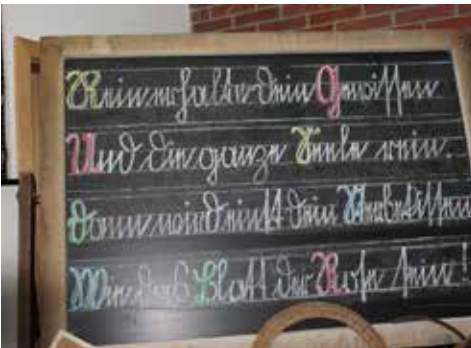 Rein erhalte dein Gewissen
Und die ganze Seele rein.
Dann wird einst dein Sterbekissen
Wie das Blatt der Rose sein!